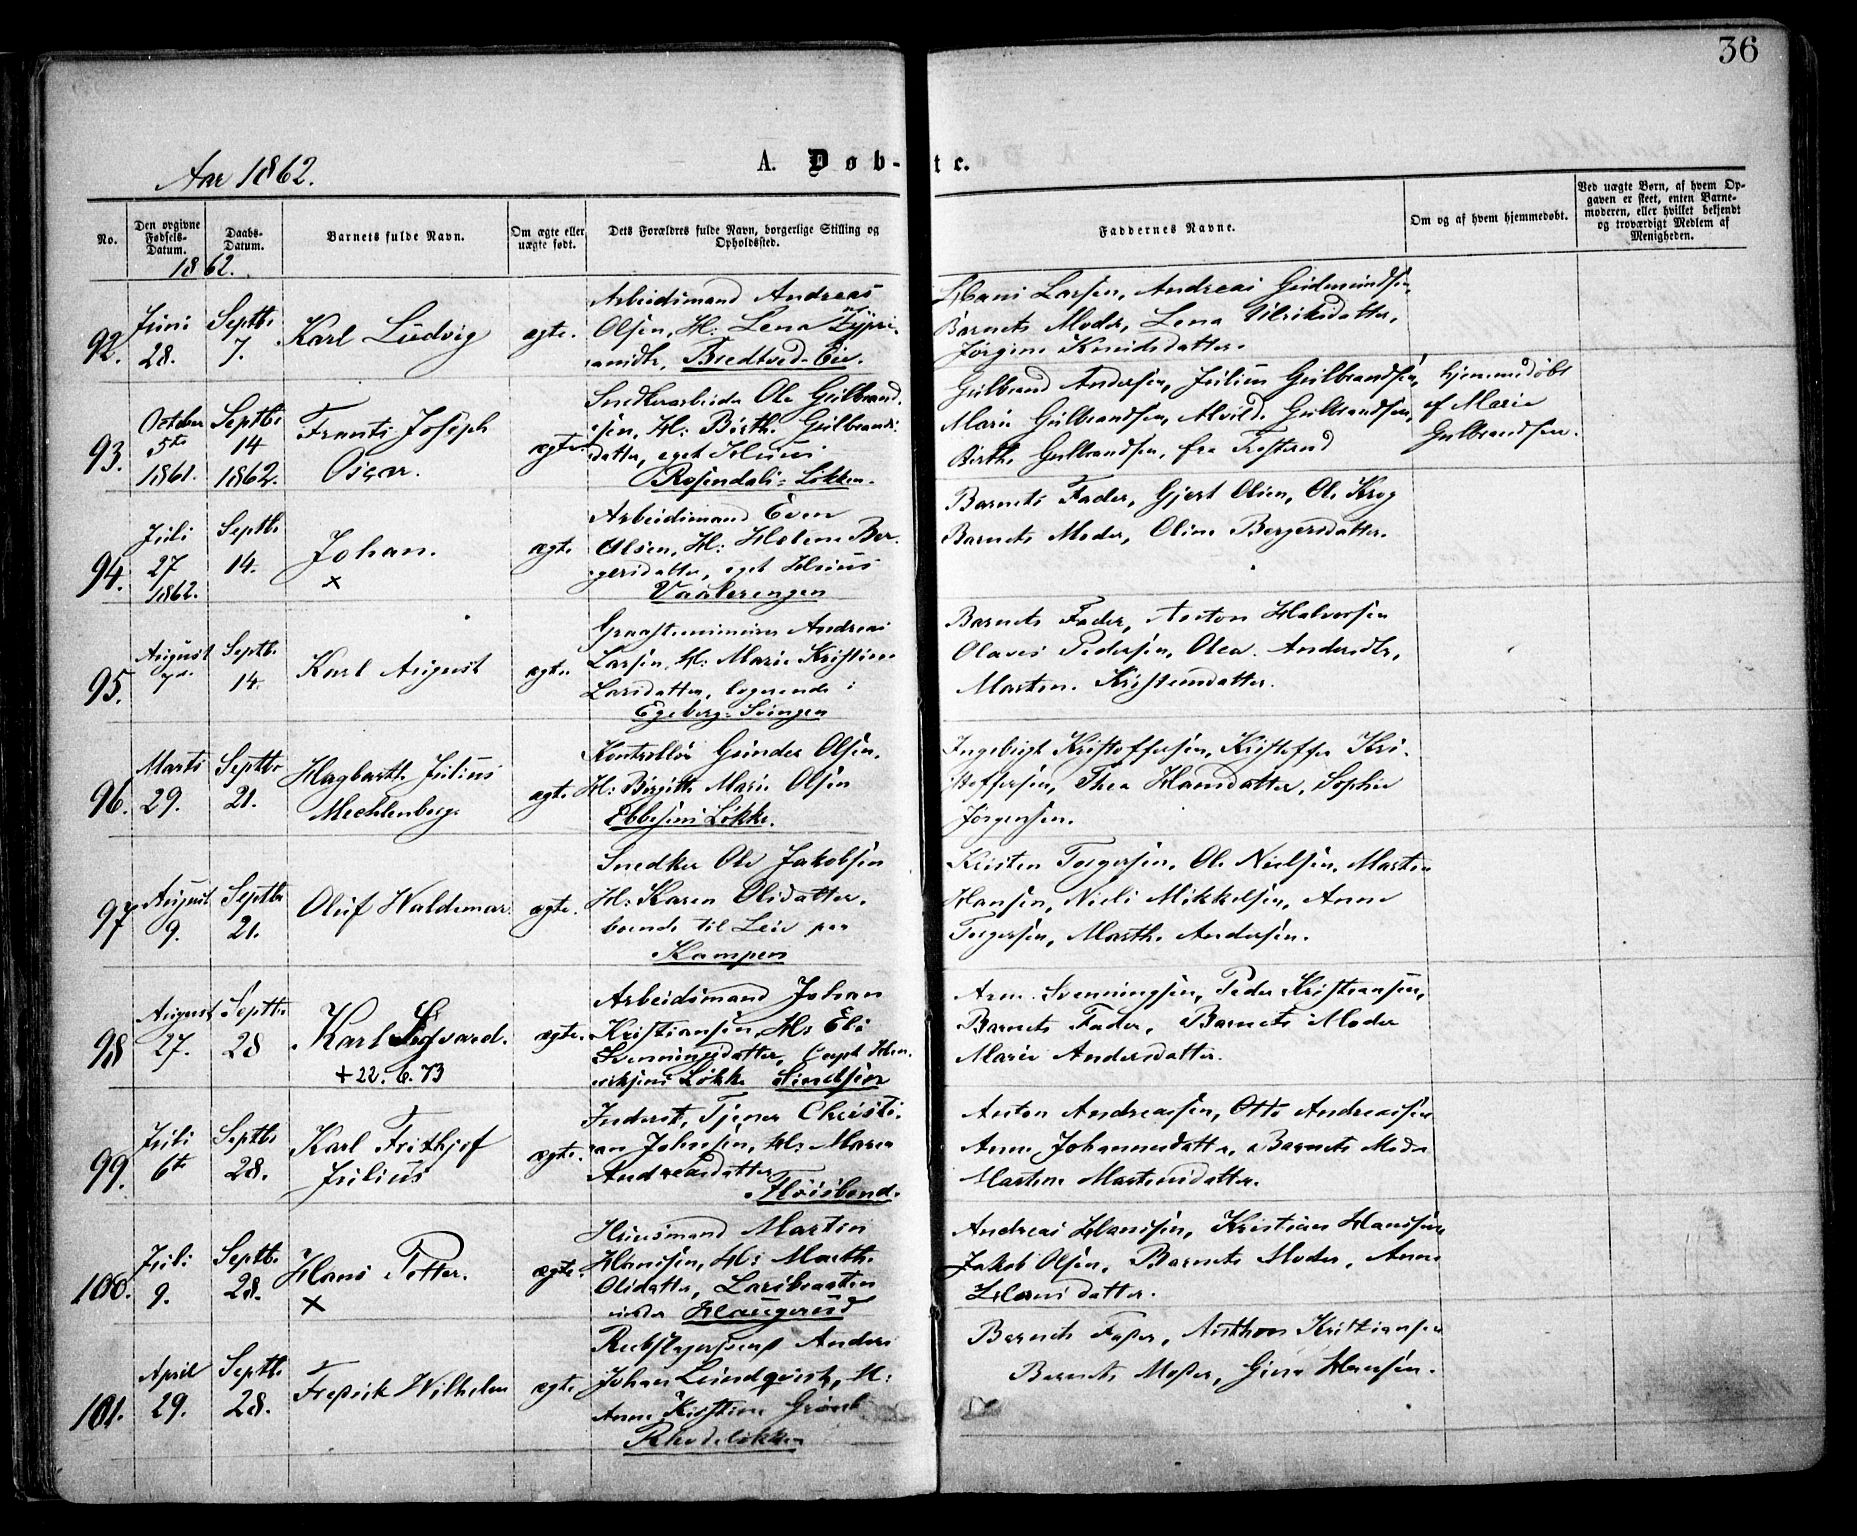 36
Aar 1862.
A. Døb-te.
No.
Den opgivne Fødsels-Datum.
Daabs-Datum.
Barnets fulde Navn.
Om ægte eller uægte født.
Dets Forældres fulde Navn, borgerlige Stilling og Opholdssted.
Faddernes Navne.
Om og af hvem hjemmedøbt.
Ved uægte Børn, af hvem Opgaven er skeet, enten Barnemoderen, eller hvilket bekjendt og troværdigt Medlem af Menigheden.
1862.
92.
Juni
28.
Septbr
7.
Karl Ludvig
ægte.
Arbeidsmand Andreas
Olsen, H: Lena Zypri-
anidtr, Bredtved-Eie.
Hans Larsen, Andreas Gudmundsen,
Barnets Moder, Lena Ulriksdatter,
Jørgine Knudsdatter.
93.
October
5te
1861.
Septbr
14
1862.
Frants Joseph
Oscar.
ægte.
Snedkerarbeider Ole Gulbrand-
sen, H: Birthe Gulbrands-
datter, eget Huus
Rosendals-Løkken.
Gulbrand Andersen, Julius Gulbrandsen,
Marie Gulbrandsen, Alvilde Gulbrandsen,
Birthe Gulbrandsen, fra
hjemmedøbt
af Marie
Gulbrandsen.
94.
Juli
27
1862.
Septbr
14.
Johan.
x
ægte
Arbeidsmand Even
Olsen, H: Helene Ber-
gersdatter, eget Huus
Vaalerengen
Barnets Fader, Gjert Olsen, Ole Krog
Barnets Moder, Oline Bergersdatter.
95.
August
7de
Septbr
14.
Karl August
ægte.
Graasteensmurer Andreas
Larsen, H: Marie Kristine
Larsdatter, logerende i
Egeberg-Svingen
Barnets Fader, Anton Halvorsen
Olaves Pedersen, Olea Andersdtr,
Marten. Kristensdatter.
96.
Marts
29.
Septbr
21.
Hagbarth Julius
Mechlenberg.
ægte.
Kontrollør Gunder Olsen.
H: Birgitte Marie Olsen
Ebbesens Løkke.
Ingebrigt Kristoffersen, Kristoffer Kri-
stoffersen, Thea Hansdatter, Sophie
Jørgensen.
97
August
9.
Septbr
21.
Oluf Waldemar
ægte.
Snedker Ole Jakobsen
H: Karen Olsdatter.
boende til Leie paa
Kampen
Kristen Torgersen, Ole Nielsen, Martin
Hansen, Niels Mikkelsen, Anne
Torgersen, Marthe Andersen.
98
August
27.
Septbr
28
Karl Sigvard.
+ 22.6.73
ægte.
Arbeidsmand Johan
Kristiansen, H: Eli
Svenningsdatter, Capt Hen-
riksens Løkke
Arne Svenningsen, Peder Kristiansen,
Barnets Fader, Barnets Moder
Marie Andersdatter.
99.
Juli
6te
Septbr
28.
Karl Frithjof
Julius
ægte.
Inderst, Tjener Christi-
an Johnsen, H: Maren
Andreasdatter
Fløisbond.
Anton Andreassen, Otto Andreassen
Anne Johannesdatter, Barnets Moder
Martine Martinsdatter.
100.
Juli
9.
Septbr
28.
Hans Petter.
x
ægte.
Huusmand Martin
Hansen, H: Marthe
Olsdatter, Larsbraaten
under Haugerud
Andreas Hansen, Kristian Hansen
Jakob Olsen, Barnets Moder, Anne
Hansdatter.
101.
April
29.
Septbr
28.
Fredrik Wilhelm
ægte
Rebslagersvend Anders
Johan Lundqvist, H:
Anne Kirstine Grønli
Rhodeløkken
Barnets Fader, Anthon Kristiansen
Barnets Moder, Gina Hansen.